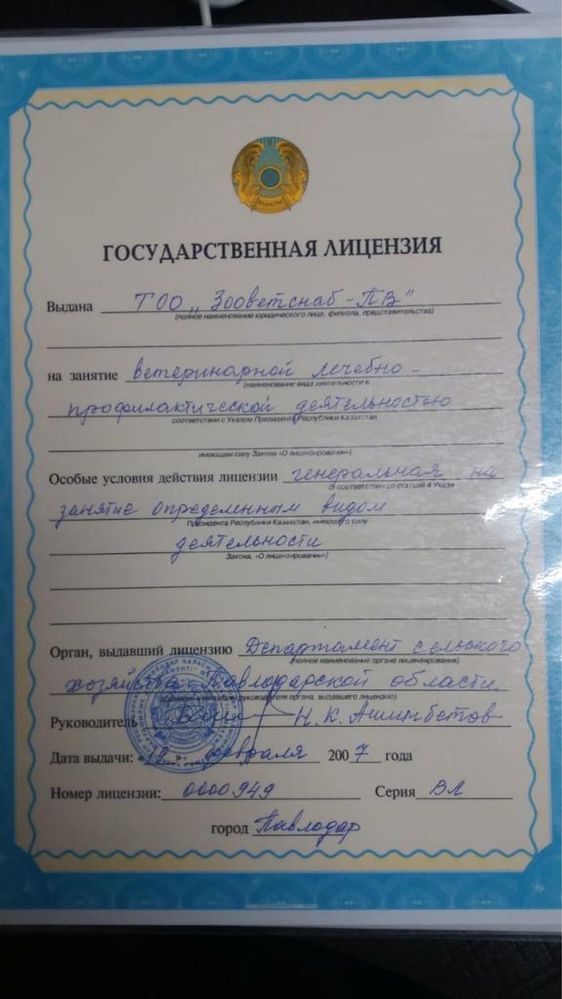 ГОСУДАРСТВЕННАЯ ЛИЦЕНЗИЯ
Выдана ТОО „Зооветснаб-ПВ"
(полное наименование юридического лица, филиала, представительства)
на занятие ветеринарной лечебно-
(наименование вида деятельности в
профилактической деятельностью
соответствии с Указом Президента Республики Казахстан
имеющем силу Закона «О лицензировании»)
Особые условия действия лицензии генеральная на
(в соответствии со статьей 4 Указа
занятие определенным видом
Президента Республики Казахстан, имеющего силу
деятельности
Закона, «О лицензировании»)
Орган, выдавший лицензию Департамент сельского
(полное наименование органа лицензирования)
хозяйства Павлодарской области
руководителя органа, выдавшего лицензию)
Руководитель Н.К. Ашимбетов
Дата выдачи: февраля 2007 года
Номер лицензии: 0000949 Серия ВЛ
город Павлодар